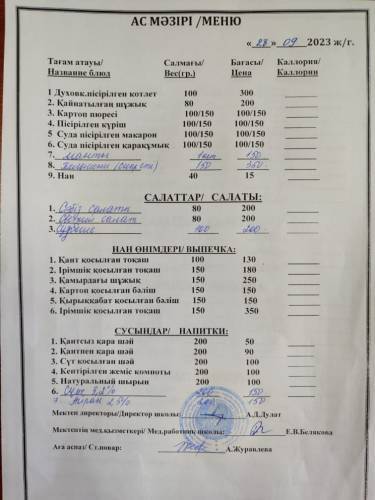 АС МӘЗІРІ /МЕНЮ
« 28 » 09 2023 ж/г.
Тағам атауы/ Салмағы/ Бағасы/ Каллория/
Название блюд Вес(гр.) Цена Каллории
1 Духовк.пісірілген котлет 100 300
2. Қайнатылған шұжық 80 200
3. Картоп пюресі 100/150 100/150
4. Пісірілген күріш 100/150 100/150
5 Суда пісірілген макарон 100/150 100/150
6. Суда пісірілген қарақұмық 100/150 100/150
7. манты 1шт 150
8. 150 350
9. Нан 40 15
САЛАТТАР/ САЛАТЫ:
1. Сәбіз салаты 80 200
2. салат 80 200
3. 100 200
НАН ӨНІМДЕРІ/ ВЫПЕЧКА:
1. Қант қосылған тоқаш 100 130
2. Ірімшік қосылған тоқаш 150 180
3. Қамырдағы шұжық 150 250
4. Картоп қосылған бәліш 150 150
5. Қырыққабат қосылған бәліш 150 150
6. Ірімшік қосылған тоқаш 150 350
СУСЫНДАР/ НАПИТКИ:
1. Қантсыз қара шәй 200 50
2. Қантпен қара шәй 200 90
3. Сүт қосылған шәй 200 100
4. Кептірілген жеміс компоты 200 100
5. Натуральный шырын 200 100
6. Сүт 200 150
7. Айран 2,5% 200 150
Мектеп директоры/Директор школы: А.Д.Дулат
Мектептің мед.қызметкері/ Мед.работник школы: Е.В.Белякова
Аға аспаз/ Ст.повар: А.Журавлева